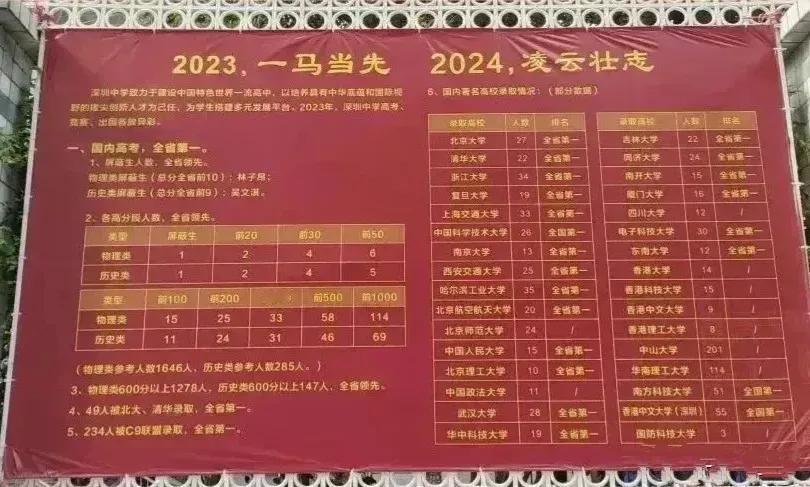 2023，一马当先 2024，凌云壮志
深圳中学致力于建设中国特色世界一流高中，以培养具有中华底蕴和国际视
野的拔尖创新人才为己任，为学生搭建多元发展平台。2023年，深圳中学高考、
竞赛、出国各放异彩。
一、国内高考，全省第一。
1、屏蔽生人数，全省领先。
物理类屏蔽生（总分全省前10）：林子昂；
历史类屏蔽生（总分全省前9）：吴文淇。
2、各高分段人数，全省领先。
类型 屏蔽生 前20 前30 前50
物理类 1 2 4 6
历史类 1 2 4 5
类型 前100 前200 前500 前1000
物理类 15 25 33 58 114
历史类 11 24 31 46 69
（物理类参考人数1646人，历史类参考人数285人。）
3、物理类600分以上1278人，历史类600分以上147人，全省领先。
4、49人被北大、清华录取，全省第一。
5、234人被C9联盟录取，全省第一。
6、国内著名高校录取情况：（部分数据）
录取高校 人数 排名
北京大学 27 全省第一
清华大学 22 全省第一
浙江大学 34 全省第一
复旦大学 19 全省第一
上海交通大学 33 全省第一
中国科学技术大学 26 全国第一
南京大学 13 全省第一
西安交通大学 25 全省第一
哈尔滨工业大学 35 全省第一
北京航空航天大学 20 全省第一
北京师范大学 24 /
中国人民大学 15 全省第一
北京理工大学 10 全省第一
中国政法大学 11 /
武汉大学 28 全省第一
华中科技大学 19 全省第一
录取高校 人数 排名
吉林大学 22 全省第一
同济大学 24 全省第一
南开大学 15 全省第一
厦门大学 16 全省第一
四川大学 12 /
电子科技大学 30 全省第一
东南大学 12 全省第一
香港大学 14 /
香港科技大学 15 /
香港中文大学 9 /
香港理工大学 8 /
中山大学 201 /
华南理工大学 114 /
南方科技大学 51 全国第一
香港中文大学（深圳） 55 全国第一
国防科技大学 3 /